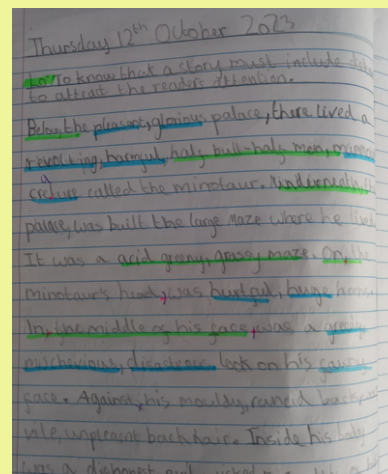 Thursday 12th October 2023
to To know that a story must include
to attract the readers attention.
Below, the pleasent, glorious palace, there lived a
revolting, harmful, half bull-half man,
a
creture called the minotaur. Underneath, the
palace, was built the large maze where he lived
It was a acid greeny, grassy maze. On, the
minotaur's head, was hurtful, huge horns.
In, the middle of his face, was a
mischevious, disasterous look on his
face. Against, his mouldy, rancid back,
vile, unpleasant back hair. Inside his
was a dishonest